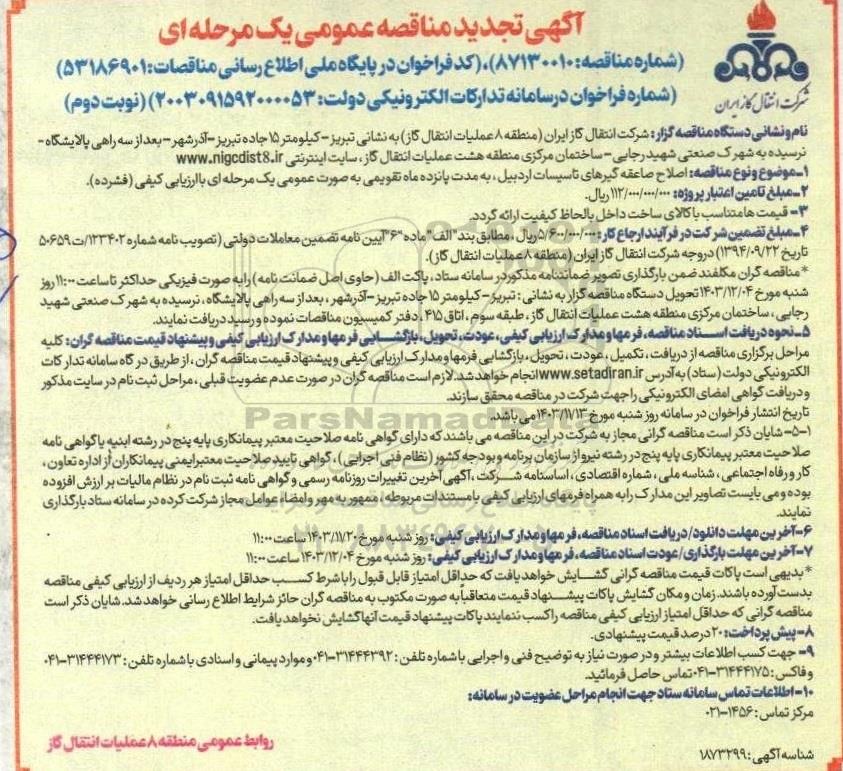 آگهی تجدید مناقصه عمومی یک مرحله ای
(شماره مناقصه: ۸۷۱۳۰۰۱۰)، (کد فراخوان در پایگاه ملی اطلاع رسانی مناقصات: ۵۳۱۸۶۹۰۱)
(شماره فراخوان در سامانه تدارکات الکترونیکی دولت: ۲۰۰۳۰۹۱۵۹۲۰۰۰۰۵۳) (نوبت دوم)
شرکت انتقال گاز ایران
نام و نشانی دستگاه مناقصه گزار: شرکت انتقال گاز ایران (منطقه ۸ عملیات انتقال گاز) به نشانی تبریز - کیلومتر ۱۵ جاده تبریز - آذرشهر - بعد از سه راهی پالایشگاه -
نرسیده به شهرک صنعتی شهید رجایی - ساختمان مرکزی منطقه هشت عملیات انتقال گاز، سایت اینترنتی www.nigcdist8.ir
۱- موضوع و نوع مناقصه: اصلاح صاعقه گیرهای تاسیسات اردبیل، به مدت پانزده ماه تقویمی به صورت عمومی یک مرحله ای با ارزیابی کیفی (فشرده).
۲- مبلغ تامین اعتبار پروژه: ۱۱۲/۰۰۰/۰۰۰/۰۰۰ ریال.
۳- قیمت ها متناسب با کالای ساخت داخل با لحاظ کیفیت ارائه گردد.
۴- مبلغ تضمین شرکت در فرآیند ارجاع کار: ۵/۶۰۰/۰۰۰/۰۰۰ ریال، مطابق بند "الف" ماده "۶" آیین نامه تضمین معاملات دولتی (تصویب نامه شماره ۱۲۳۴۰۲/ت ۵۰۶۵۹
تاریخ ۱۳۹۴/۰۹/۲۲) در وجه شرکت انتقال گاز ایران (منطقه ۸ عملیات انتقال گاز).
* مناقصه گران مکلفند ضمن بارگذاری تصویر ضمانتنامه مذکور در سامانه ستاد، پاکت الف (حاوی اصل ضمانت نامه) را به صورت فیزیکی حداکثر تا ساعت ۱۱:۰۰ روز
شنبه مورخ ۱۴۰۳/۱۲/۰۴ تحویل دستگاه مناقصه گزار به نشانی: تبریز - کیلومتر ۱۵ جاده تبریز - آذرشهر، بعد از سه راهی پالایشگاه، نرسیده به شهرک صنعتی شهید
رجایی، ساختمان مرکزی منطقه هشت عملیات انتقال گاز، طبقه سوم، اتاق ۴۱۵، دفتر کمیسیون مناقصات نموده و رسید دریافت نمایند.
۵- نحوه دریافت اسناد مناقصه، فرمها و مدارک ارزیابی کیفی، عودت، تحویل، بازگشایی فرمها و مدارک ارزیابی کیفی و پیشنهاد قیمت مناقصه گران: کلیه
مراحل برگزاری مناقصه از دریافت، تکمیل، عودت، تحویل، بازگشایی فرمها و مدارک ارزیابی کیفی و پیشنهاد قیمت مناقصه گران، از طریق درگاه سامانه تدارکات
الکترونیکی دولت (ستاد) به آدرس www.setadiran.ir انجام خواهد شد. لازم است مناقصه گران در صورت عدم عضویت قبلی، مراحل ثبت نام در سایت مذکور
و دریافت گواهی امضای الکترونیکی را جهت شرکت در مناقصه محقق سازند.
تاریخ انتشار فراخوان در سامانه روز شنبه مورخ ۱۴۰۳/۱۱/۱۳ می باشد.
۵-۱- شایان ذکر است مناقصه گرانی مجاز به شرکت در این مناقصه می باشند که دارای گواهی نامه صلاحیت معتبر پیمانکاری پایه پنج در رشته ابنیه یا گواهی نامه
صلاحیت معتبر پیمانکاری پایه پنج در رشته نیرو از سازمان برنامه و بودجه کشور (نظام فنی اجرایی)، گواهی تایید صلاحیت معتبر ایمنی پیمانکاران از اداره تعاون،
کار و رفاه اجتماعی، شناسه ملی، شماره اقتصادی، اساسنامه شرکت، آگهی آخرین تغییرات روزنامه رسمی و گواهی نامه ثبت نام در نظام مالیات بر ارزش افزوده
بوده و می بایست تصاویر این مدارک را به همراه فرمهای ارزیابی کیفی با مستندات مربوطه، ممهور به مهر و امضاء عوامل مجاز شرکت کرده در سامانه ستاد بارگذاری
نمایند.
۶- آخرین مهلت دانلود/دریافت اسناد مناقصه، فرمها و مدارک ارزیابی کیفی: روز شنبه مورخ ۱۴۰۳/۱۱/۲۰ ساعت ۱۱:۰۰
۷- آخرین مهلت بارگذاری/عودت اسناد مناقصه، فرمها و مدارک ارزیابی کیفی: روز شنبه مورخ ۱۴۰۳/۱۲/۰۴ ساعت ۱۱:۰۰
* بدیهی است پاکات قیمت مناقصه گرانی گشایش خواهد یافت که حداقل امتیاز قابل قبول را با شرط کسب حداقل امتیاز هر ردیف از ارزیابی کیفی مناقصه
بدست آورده باشند. زمان و مکان گشایش پاکات پیشنهاد قیمت متعاقبا به صورت مکتوب به مناقصه گران حائز شرایط اطلاع رسانی خواهد شد. شایان ذکر است
مناقصه گرانی که حداقل امتیاز ارزیابی کیفی مناقصه را کسب ننمایند پاکات پیشنهاد قیمت آنها گشایش نخواهد یافت.
۸- پیش پرداخت: ۲۰ درصد قیمت پیشنهادی.
۹- جهت کسب اطلاعات بیشتر و در صورت نیاز به توضیح فنی و اجرایی با شماره تلفن: ۳۱۴۴۴۳۹۲-۰۴۱ و موارد پیمانی و اسنادی با شماره تلفن: ۳۱۴۴۴۱۷۳-۰۴۱
و فاکس: ۳۱۴۴۴۱۷۵-۰۴۱ تماس حاصل فرمائید.
۱۰- اطلاعات تماس سامانه ستاد جهت انجام مراحل عضویت در سامانه:
مرکز تماس: ۱۴۵۶-۰۲۱
روابط عمومی منطقه ۸ عملیات انتقال گاز
شناسه آگهی: ۱۸۷۳۲۹۹
ParsNamadData